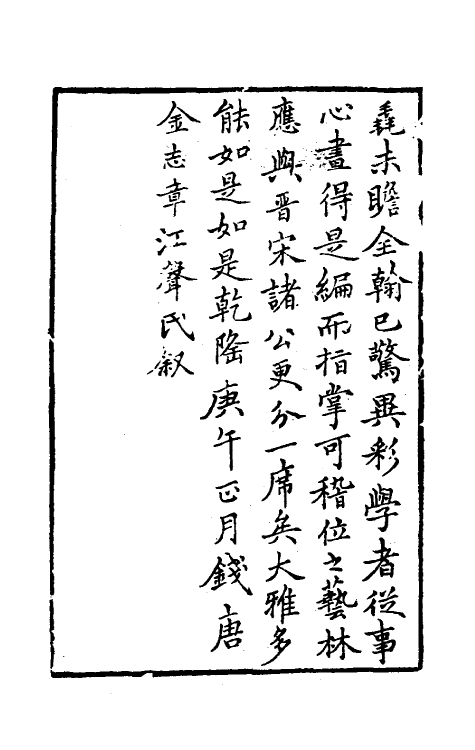 毳未瞻全翰已驚異彩學者從事
心畫得是編而指掌可稽位之藝林
應與晋宋諸公更分一席矣大雅多
能如是如是乾隆庚午正月錢唐
金志章江聲氏敘